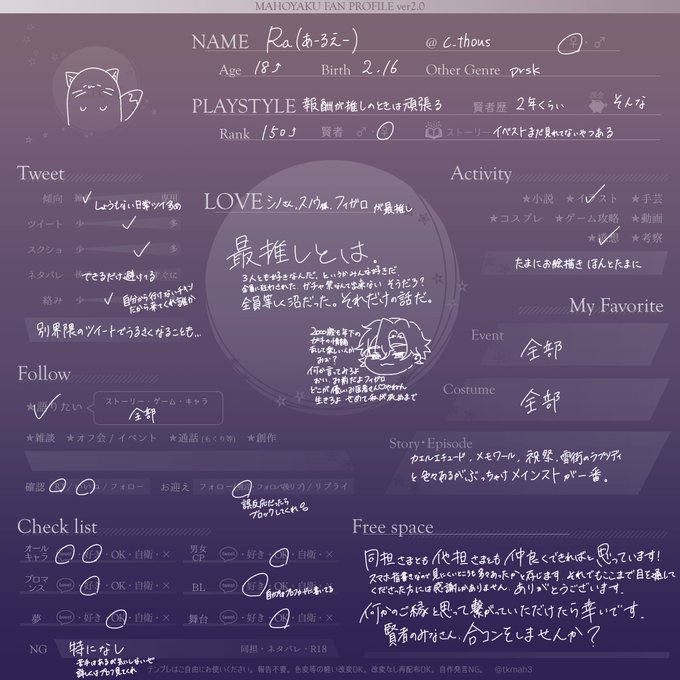 MAHOYAKU FAN PROFILE ver2.0
NAME Ra(あーるえー) @ c.thous ♀・♂
Age 18↑ Birth 2.16 Other Genre prsk
PLAYSTYLE 報酬が推しのときは頑張る 賢者歴 2年くらい 課金 そんな
Rank 150↑ 賢者 ♂・♀ ストーリー イベストまだ見れてないやつある
Tweet
傾向 しょうもない日常ツイ多め
ツイート 少 多
スクショ 少 多
ネタバレ できるだけ避けてる
絡み 少 自分から行けないチキン
だから来てくれる誰か
別界隈のツイートでうるさくなることも…
LOVE シノさん、スノウ様、フィガロ が最推し
最推しとは.
3人とも好きなんだ、というかみんな好きだ
全員に狂わされた ガチャ禁なんて出来ない そうだろ?
全員等しく沼だった。それだけの話だ。
2000歳も年下の
ガチの情緒
乱して楽しいんか
おお?
何か言ってみろよ
おい、お前だよフィガロ
Activity
★小説 ★イラスト ★手芸
★コスプレ ★ゲーム攻略 ★動画
★感想 ★考察
たまにお絵描き ほんとたまに
My Favorite
Event 全部
Costume 全部
Story・Episode
カエルエチュード、メモワール、祝祭、雪街のラプソディ
と色々あるがぶっちゃけメインストが一番。
Follow
★語りたい ストーリー・ゲーム・キャラ
全部
★雑談 ★オフ会 / イベント ★通話 (もくり等) ★創作
確認 / いいね / フォロー お迎え フォロー / リプライ
誤反応だったら
ブロックしてくれ
Check list
オールキャラ tweet・好き・OK・自衛・×
男女CP tweet・好き・OK・自衛・×
ブロマンス tweet・好き・OK・自衛・×
BL tweet・好き・OK・自衛・×
夢 tweet・好き・OK・自衛・×
舞台 tweet・好き・OK・自衛・×
NG 特になし 同担・ネタバレ・R18
苦手はあるが気にしないぜ
詳しくはプロフ見てくれ
Free space
同担さまとも他担さまとも仲良くできればと思っています!
スマホ指書きなので見にくいところも多々あったかと存じます。それでもここまで目を通して
くださった方には感謝しかありません、ありがとうございます。
何かのご縁と思って繋がっていただけたら幸いです。
賢者のみなさん、合コンをしませんか?
テンプレはご自由にお使いください。報告不要。色変等の軽い改変OK。改変なし再配布OK。自作発言NG。 @tkmah3